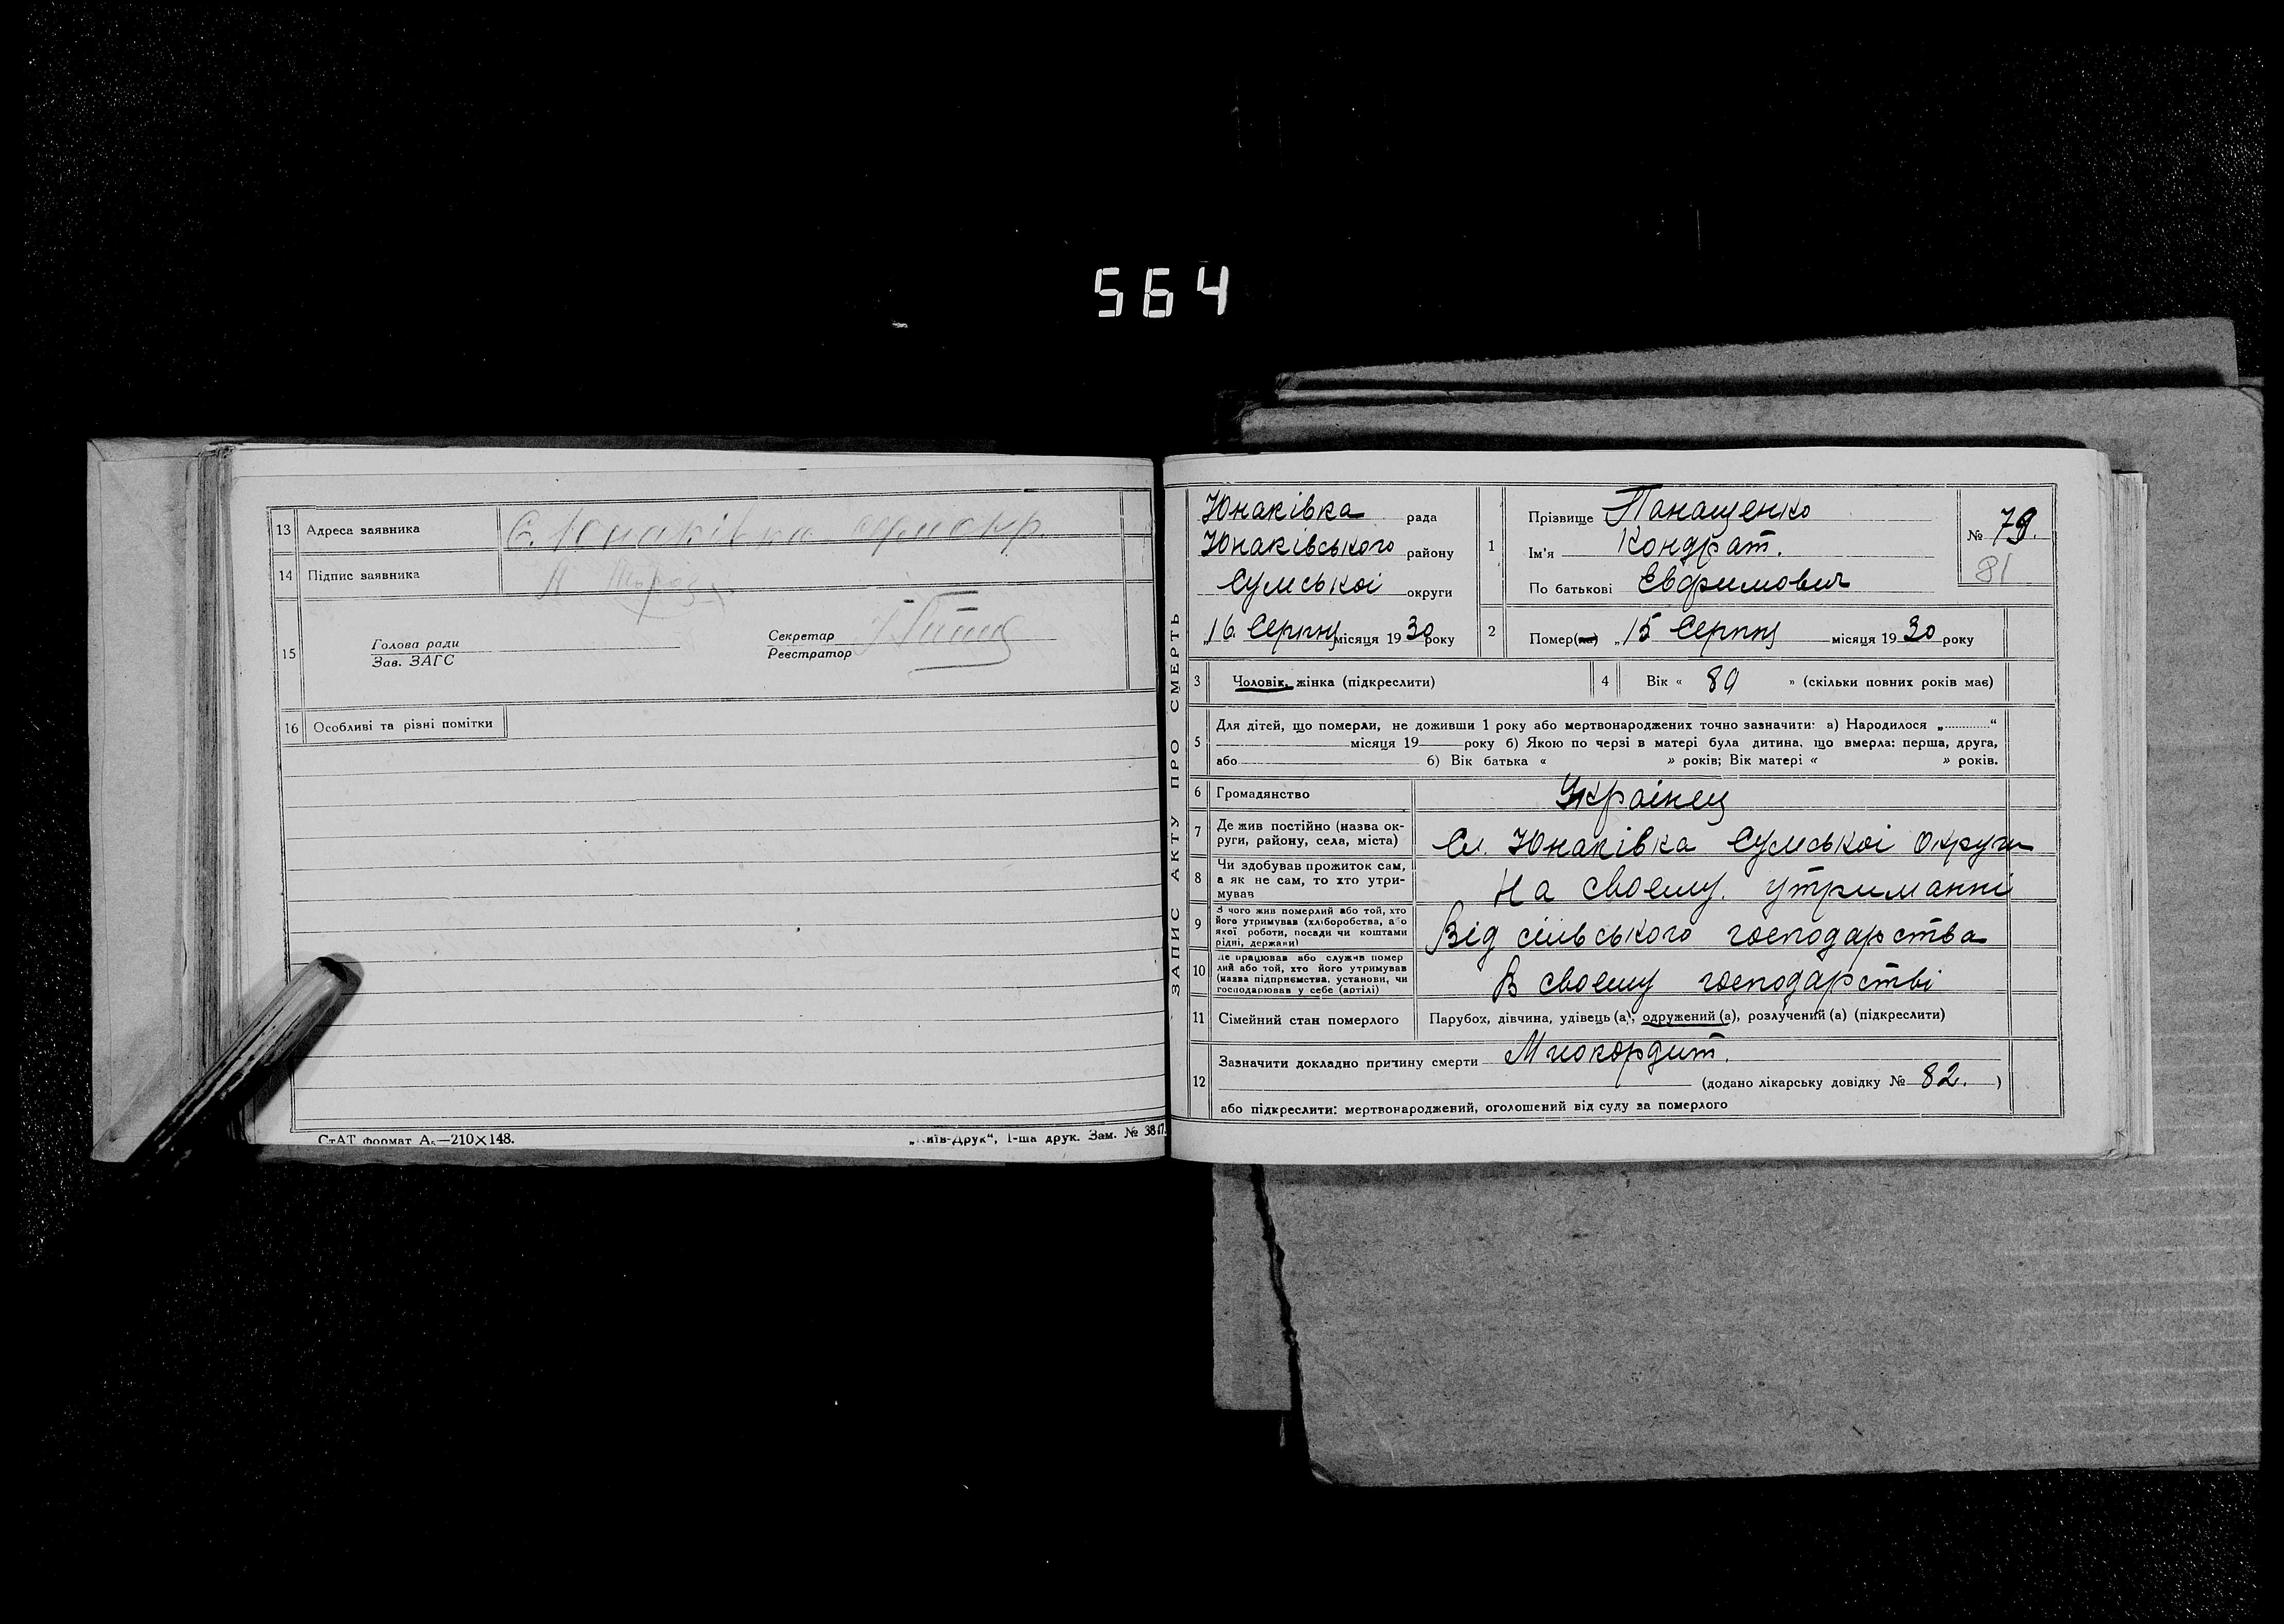 564
13 Адреса заявника С. Юнаківка Сум окр.
14 Підпис заявника
15 Голова ради
Зав. ЗАГС
Секретар
Реєстратор
16 Особливі та різні помітки
СтАТ формат А₅—210×148.
„Київ-Друк“, 1-ша друк. Зам. № 3817.
ЗАПИС АКТУ ПРО СМЕРТЬ
Юнаківка рада
Юнаківського району
Сумської округи
„16 Серпня місяця 1930 року
1 Прізвище Панащенко
Ім'я Кондрат.
По батькові Евфимович
№ 79.
81
2 Помер(ла) „15 Серпня місяця 1930 року
3 Чоловік, жінка (підкреслити)
4 Вік « 89 » (скільки повних років має)
5 Для дітей, що померли, не доживши 1 року або мертвонароджених точно зазначити: а) Народилося „............“
місяця 19 року б) Якою по черзі в матері була дитина, що вмерла: перша, друга,
або б) Вік батька « » років; Вік матері « » років.
6 Громадянство Украінец
7 Де жив постійно (назва ок-
руги, району, села, міста) Сл. Юнаківка Сумської Округи
8 Чи здобував прожиток сам,
а як не сам, то хто утри-
мував На своему. утриманні
9 З чого жив померлий або той, хто
його утримував (хліборобства, або
якої роботи, посади чи коштами
рідні, держави) Від сільського господарства
10 Де працював або служив помер
лий або той, хто його утримував
(назва підприємства, установи, чи
господарював у себе (артілі) В своему господарстві
11 Сімейний стан померлого Парубок, дівчина, удівець (а), одружений (а), розлучений (а) (підкреслити)
12 Зазначити докладно причину смерти Миокордит.
(додано лікарську довідку № 82. )
або підкреслити: мертвонароджений, оголошений від суду за померлого